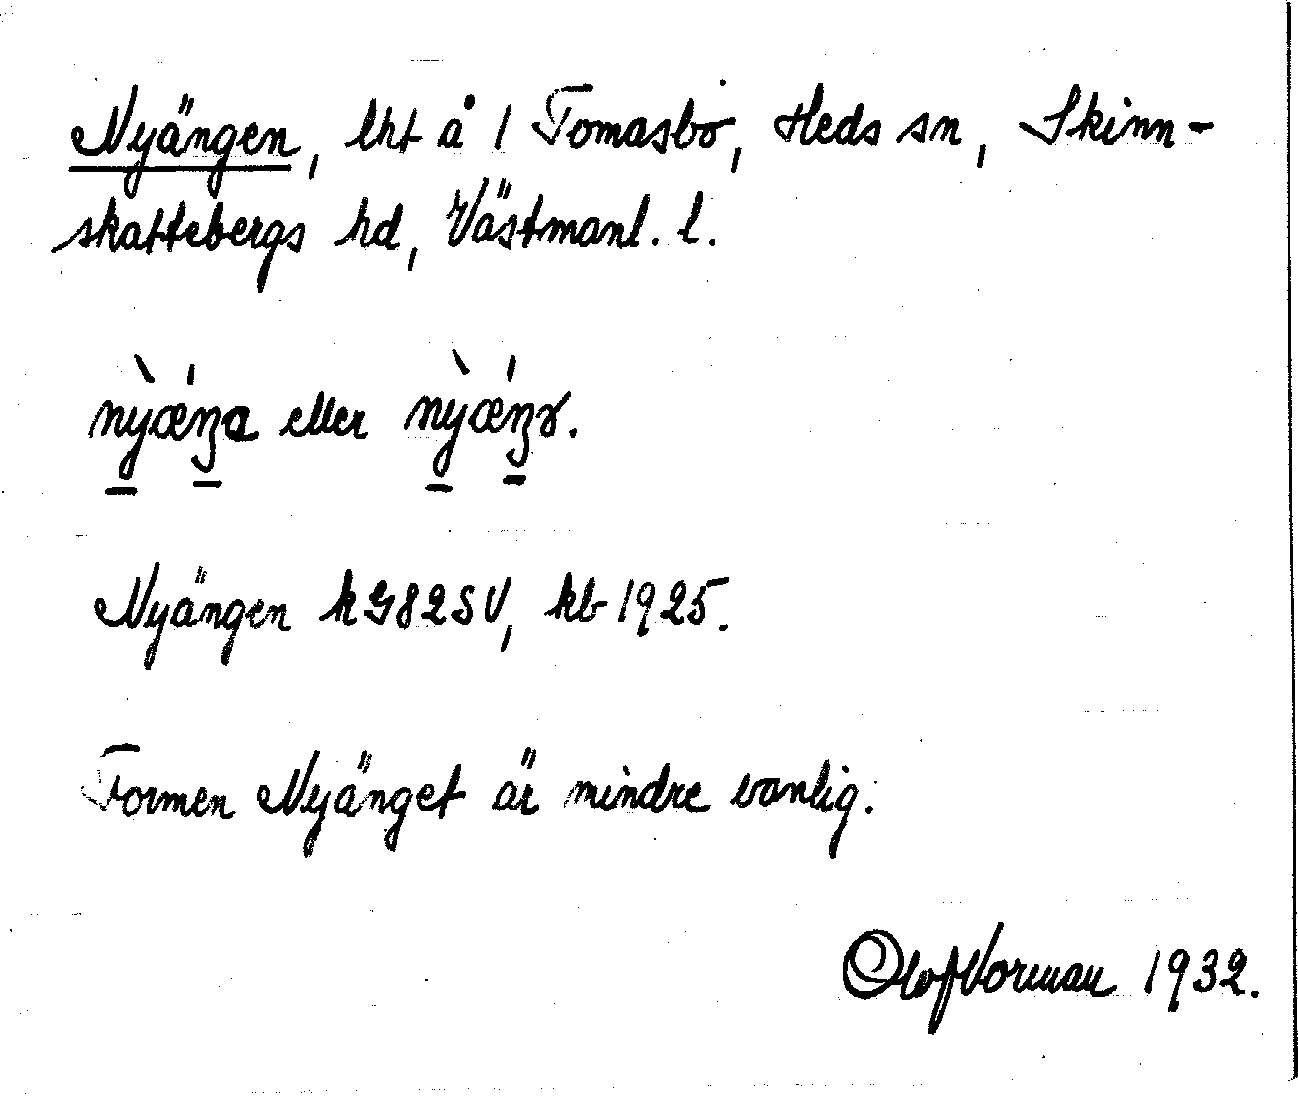 Nyängen, lht å 1 Tomasbo, Heds sn, Skinn-
skattebergs hd, Västmanl. l.
eller
Nyängen kG82SV, kb 1925.
Formen Nyänget är mindre vanlig.
Olof Vorman 1932.